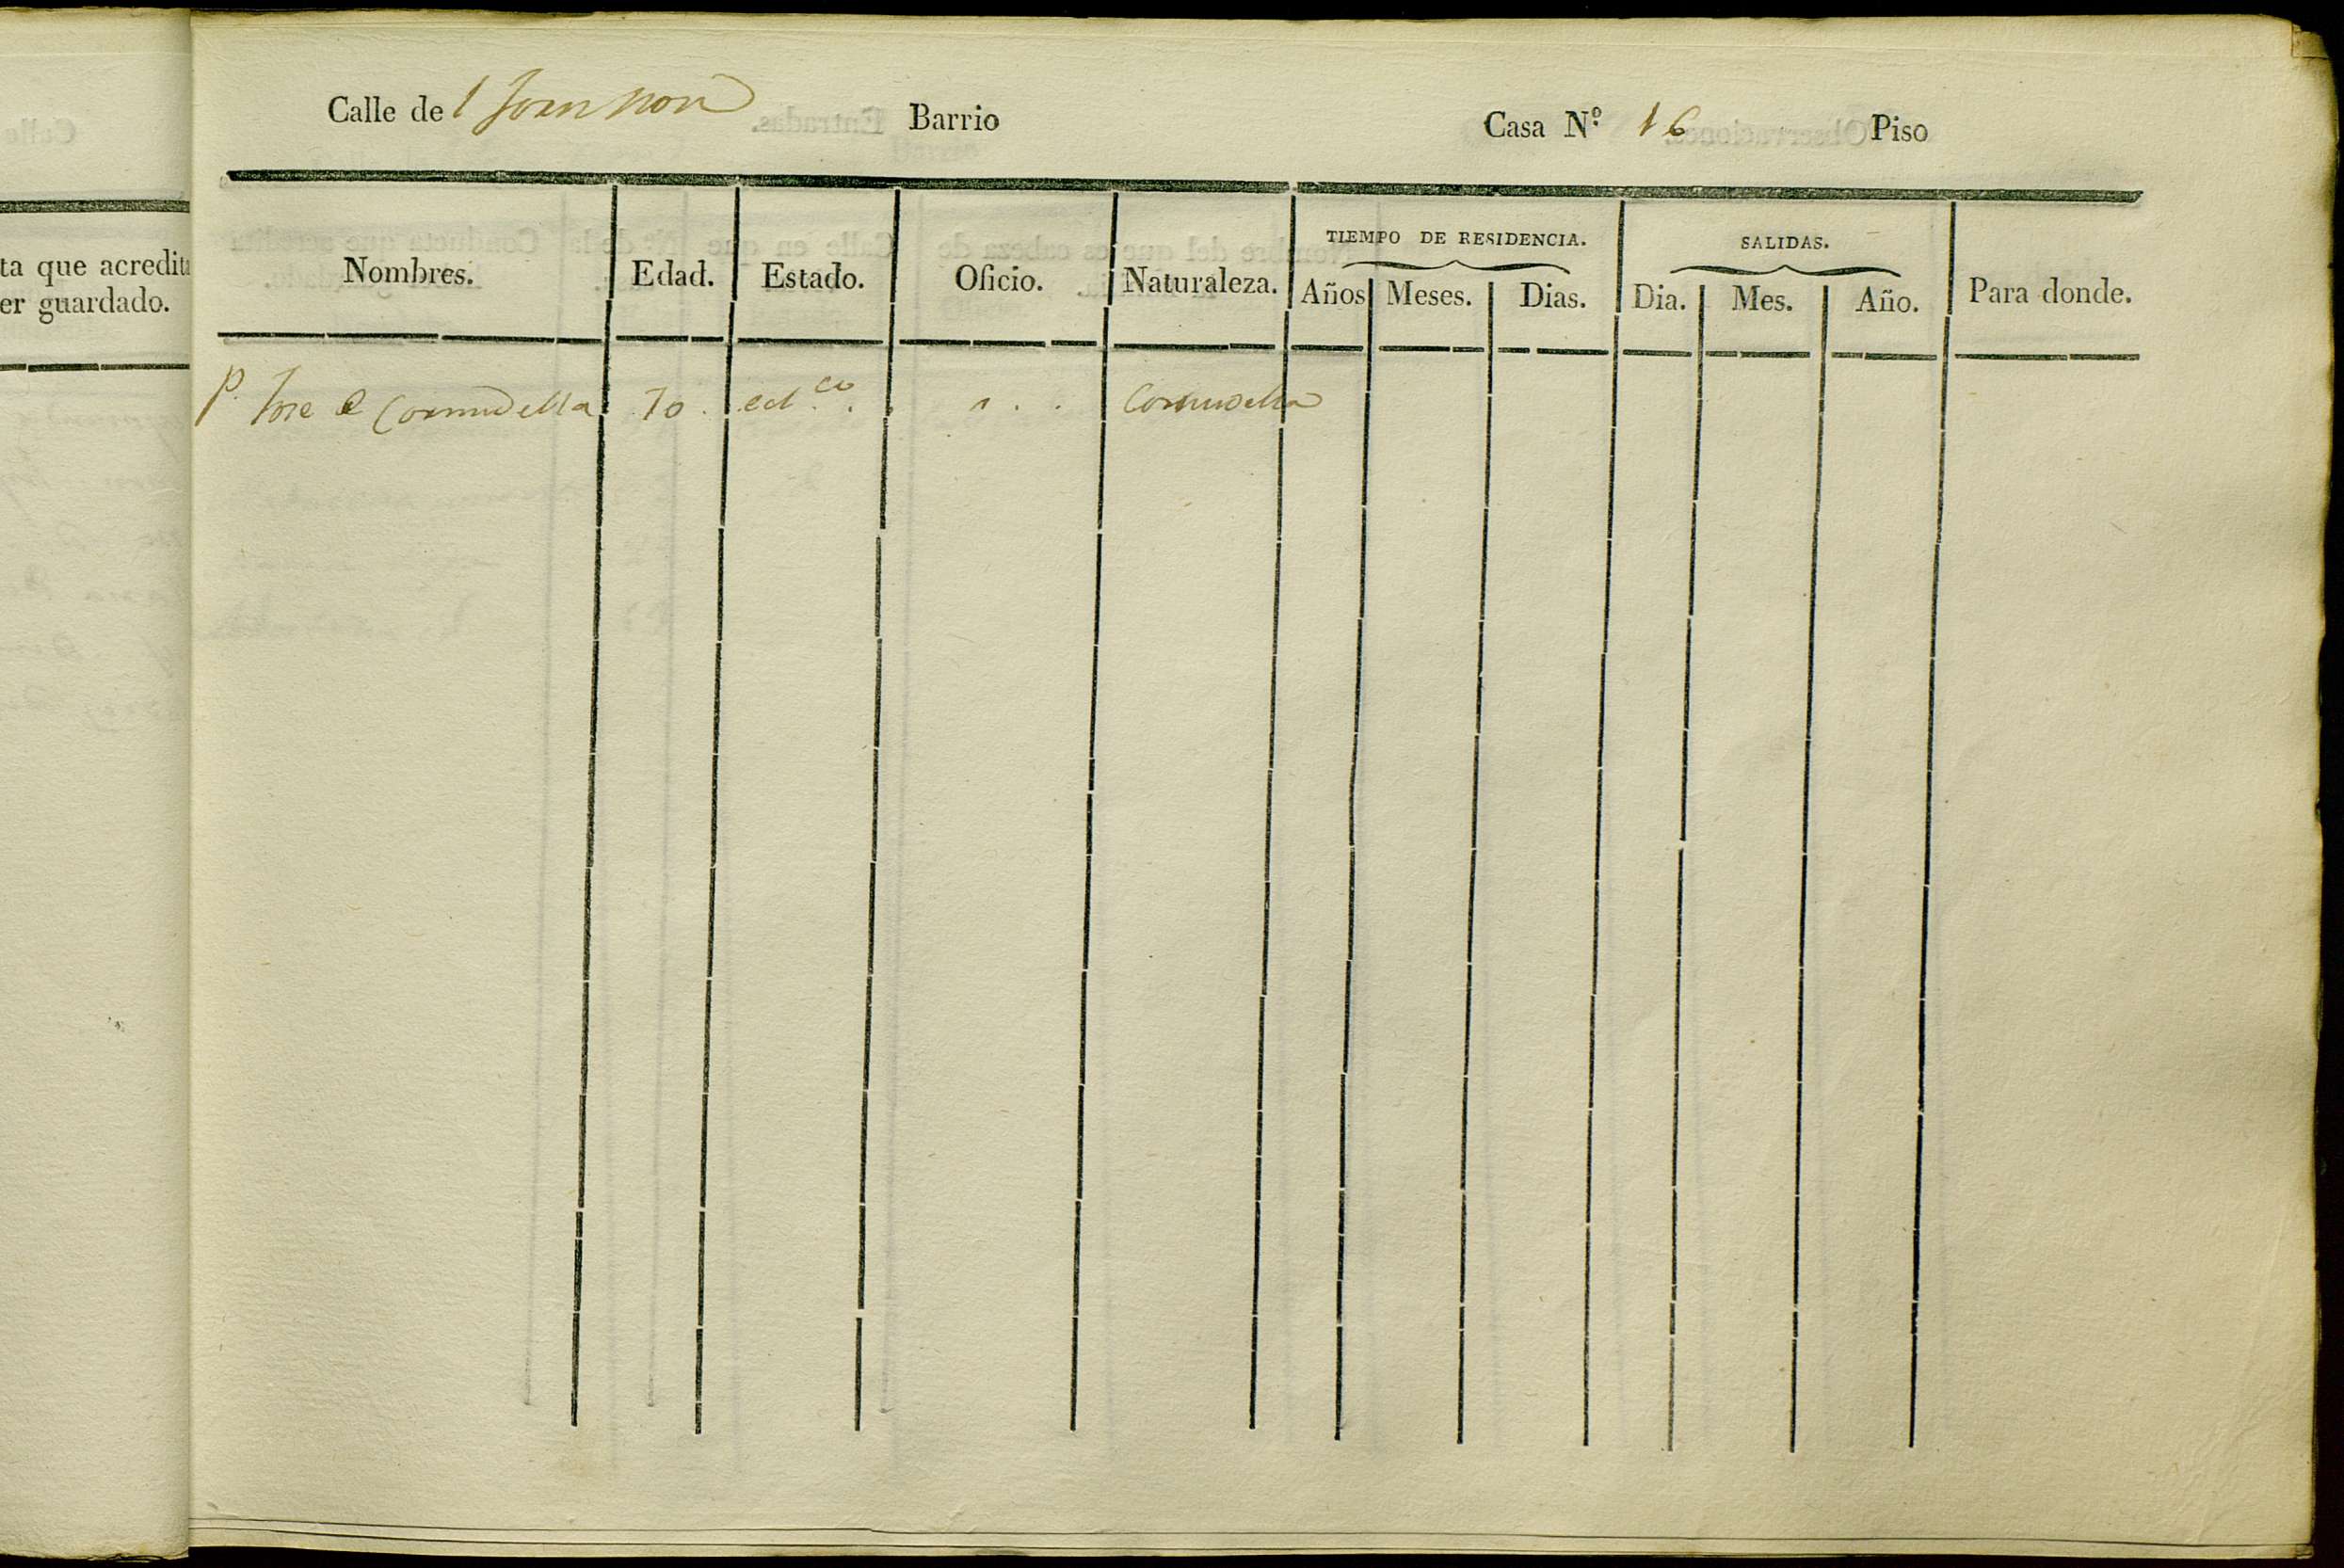 Calle de Barrio Casa N.º 16 Piso
ta que acredit
er guardado.
Nombres. Edad. Estado. Oficio. Naturaleza. TIEMPO DE RESIDENCIA. SALIDAS. Para donde.
Años Meses. Dias. Dia. Mes. Año.
P. Jose Cornudella 70. ecl.co Cornudella